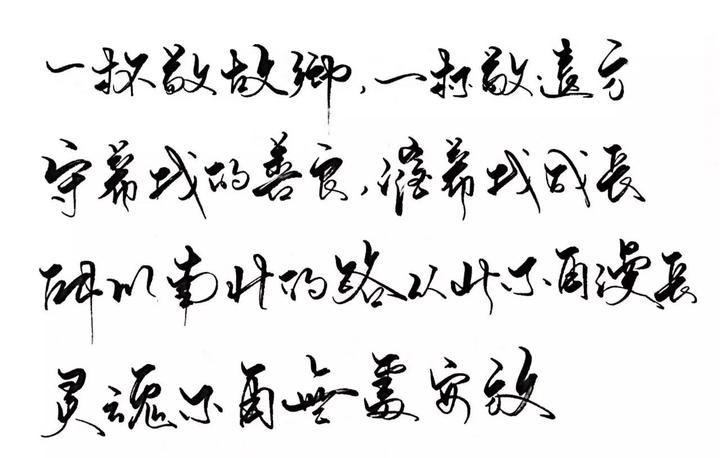 一杯敬故鄉，一杯敬遠方
守着我的善良，催着我成長
所以南北的路从此不再漫長
灵魂不再無處安放